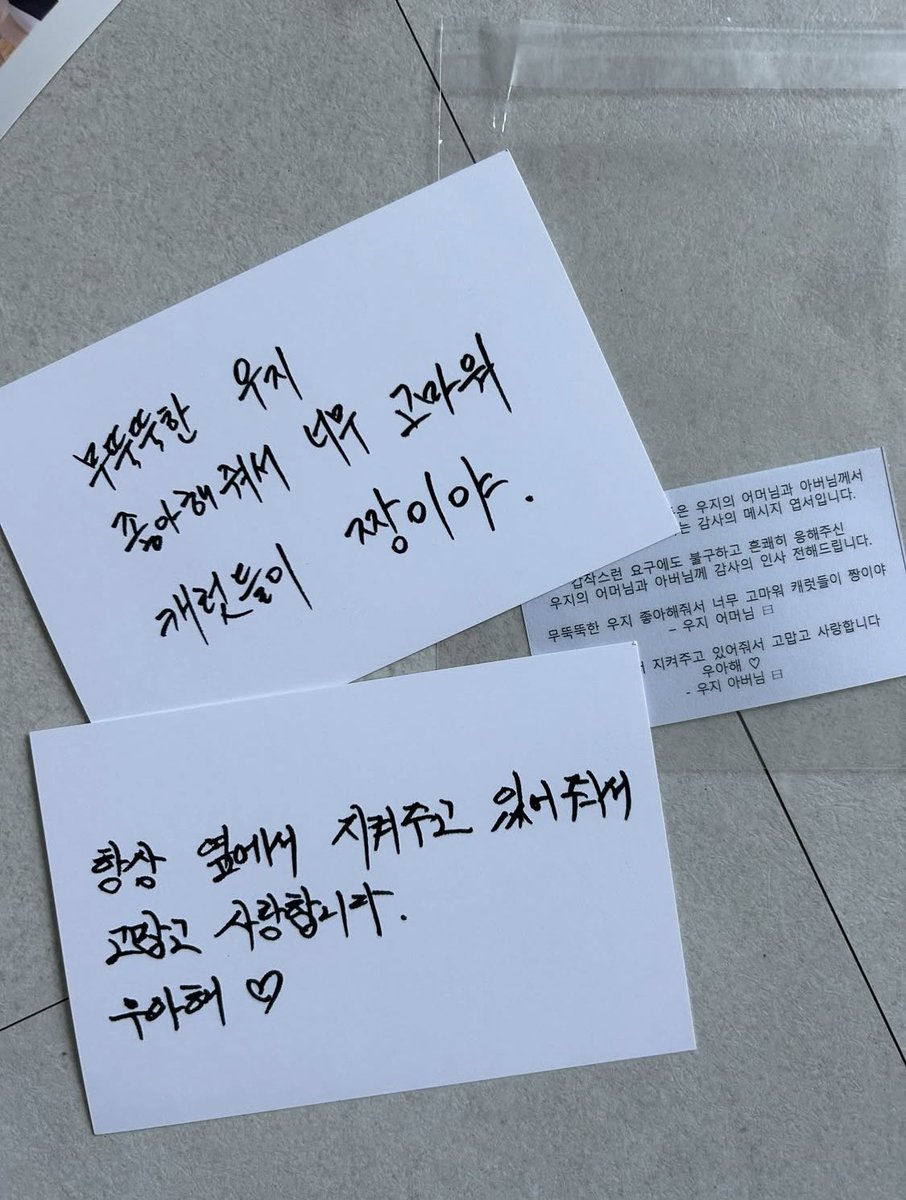 무뚝뚝한 우지
좋아해줘서 너무 고마워
캐럿들이 짱이야.
은 우지의 어머님과 아버님께서
는 감사의 메시지 엽서입니다.
갑작스런 요구에도 불구하고 흔쾌히 응해주신
우지의 어머님과 아버님께 감사의 인사 전해드립니다.
무뚝뚝한 우지 좋아해줘서 너무 고마워 캐럿들이 짱이야
- 우지 어머님
지켜주고 있어줘서 고맙고 사랑합니다
우아해 ♡
- 우지 아버님
항상 옆에서 지켜주고 있어줘서
고맙고 사랑합니다.
우아해 ♡